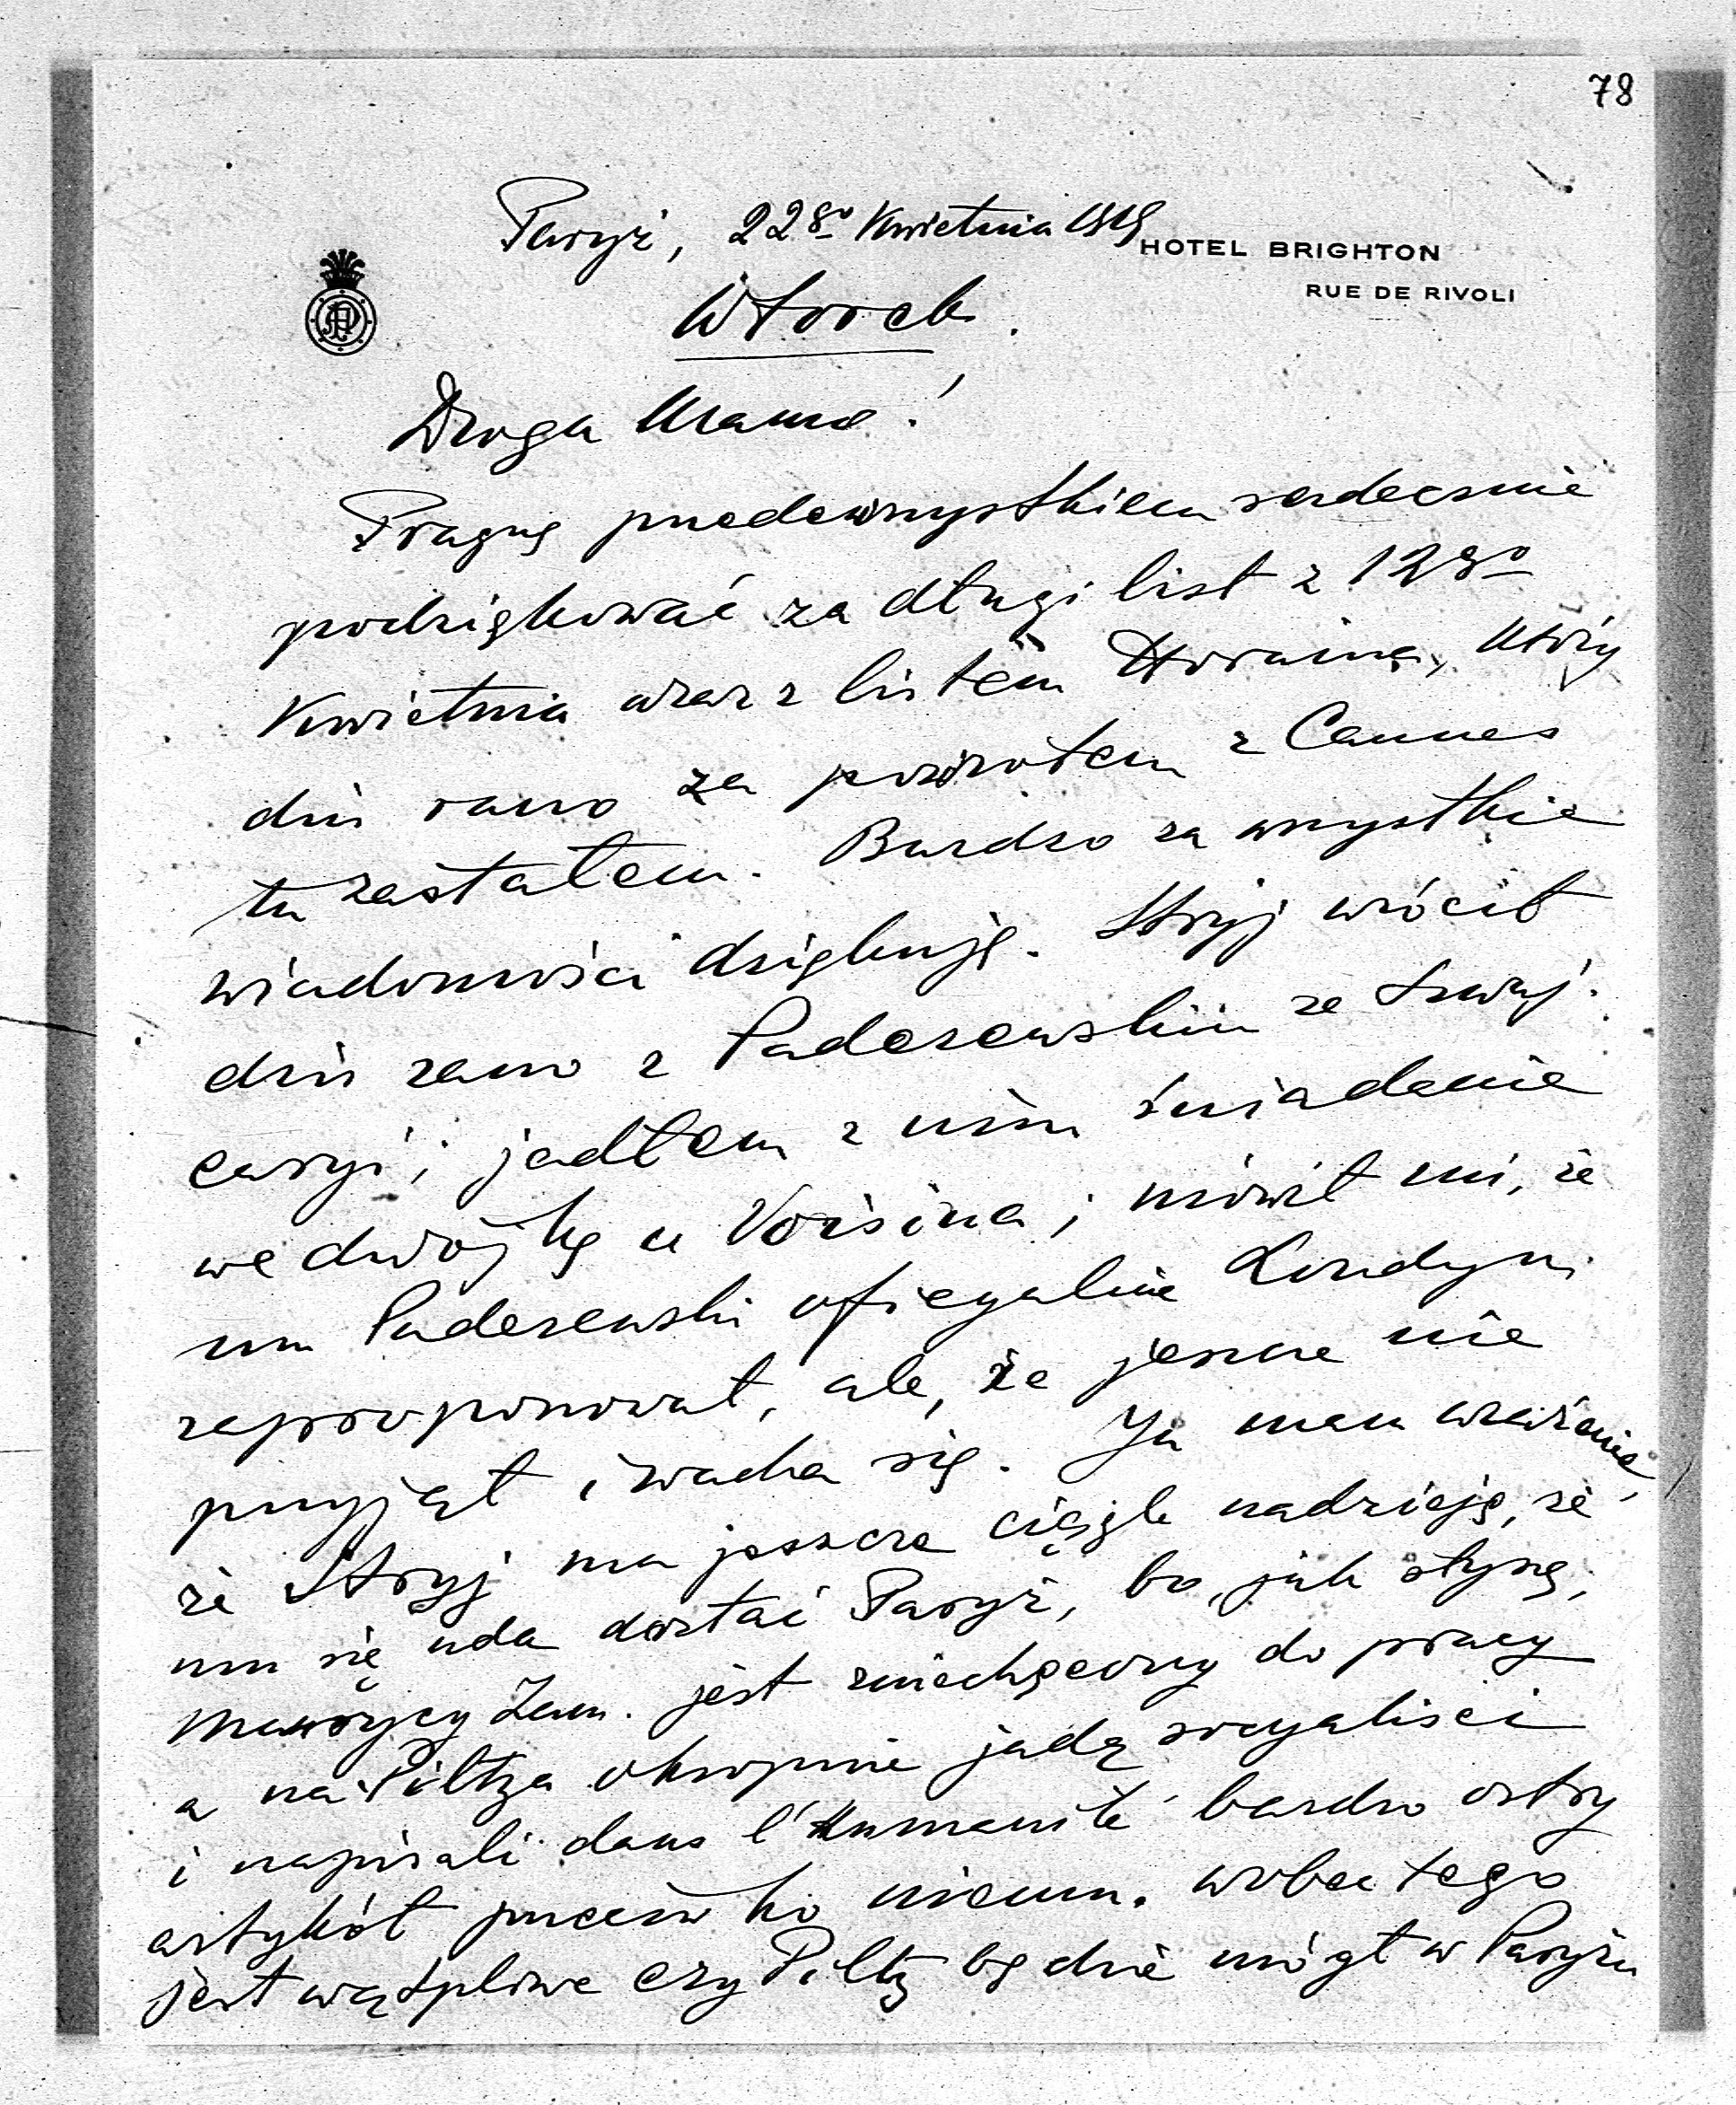 78
Paryż, 22go Kwietnia 1919
HOTEL BRIGHTON
RUE DE RIVOLI
Wtorek.
Droga Mamo!
Pragnę przedewszystkiem serdecznie
podziękować za długi list z 12go
Kwietnia wraz z listem Horaina, który
dziś rano za powrotem z Cannes
tu zastałem. Bardzo za wszystkie
wiadomości dziękuję. Stryj wrócił
dziś rano z Paderewskim ze Szwaj-
caryi; jadłem z nim śniadanie
we dwójkę u Voisina; mówił mi, że
mu Paderewski oficyalnie Londyn
zaproponował, ale, że jeszcze nie
przyjął i wacha się. Ja mam wrażenie,
że Stryj ma jeszcze ciągle nadzieję, że
mu się uda dostać Paryż, bo, jak słyszę,
Maurycy Zam. jest zniechęcony do pracy
a na Piltza okropnie jadą socyaliści
i napisali dans l'Humanité bardzo ostry
artykół przeciwko niemu. Wobec tego
jest wątpliwe czy Piltz będzie mógł w Paryżu